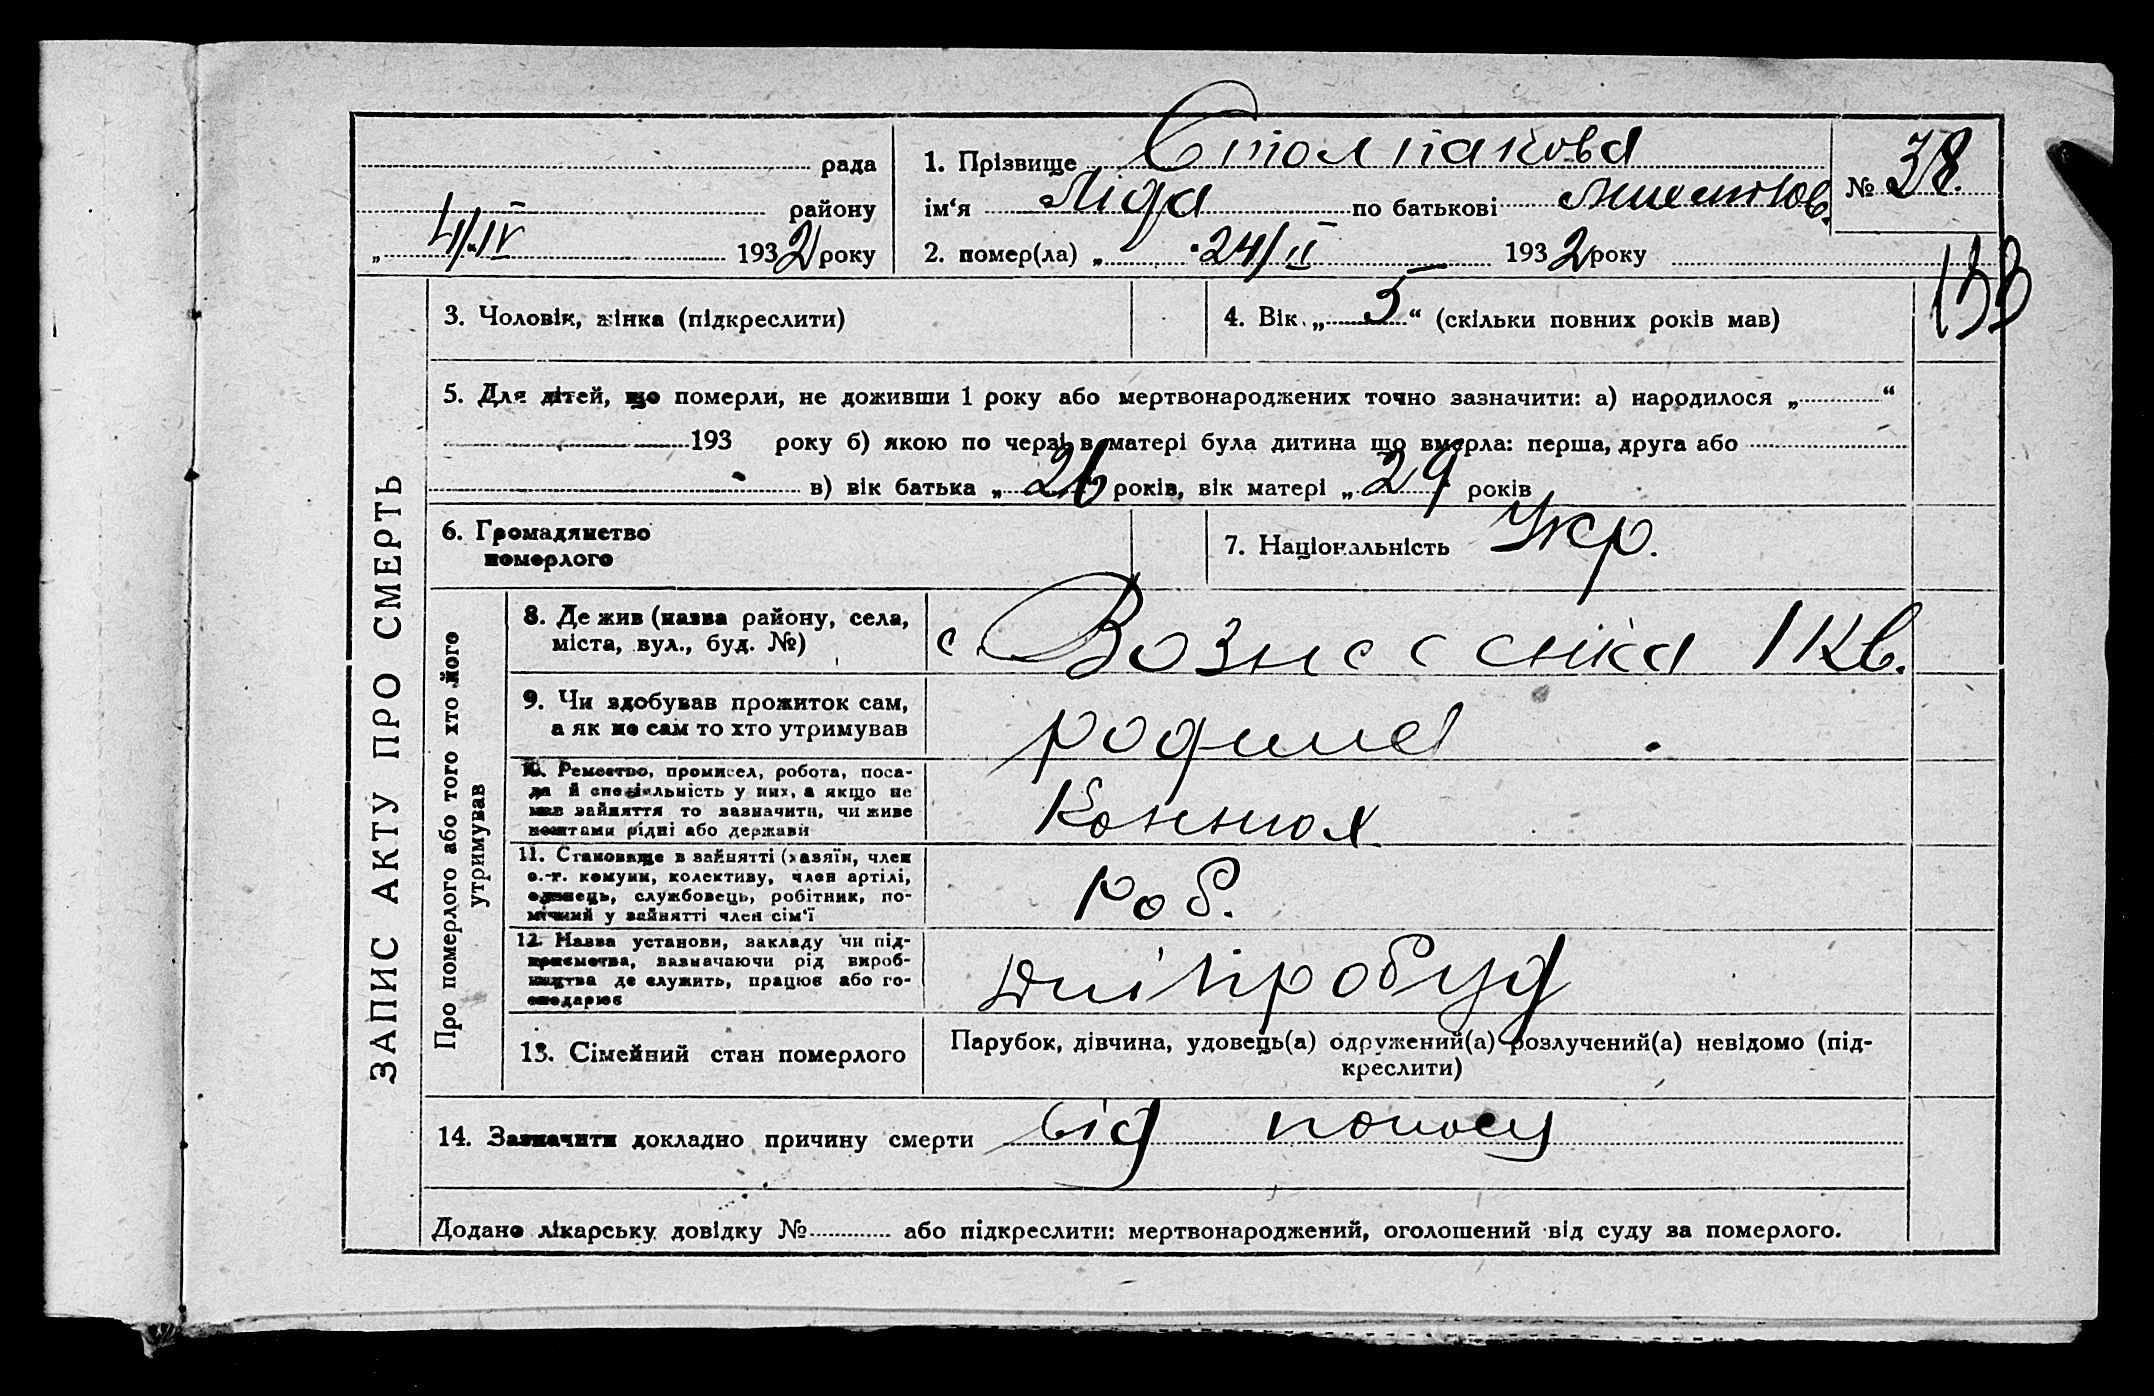 рада
району
„ 4/IV 1932 року
1. Прізвище Столпакова
ім‘я Ліда по батькові
2. помер(ла) „ 24/II 1932 року
№ 38.
133
ЗАПИС АКТУ ПРО СМЕРТЬ
3. Чоловік, жінка (підкреслити)
4. Вік „ 5 “ (скільки повних років мав)
5. Для дітей, що померли, не доживши 1 року або мертвонароджених точно зазначити: а) народилося „ “
193 року б) якою по черзі в матері була дитина що вмерла: перша, друга або
в) вік батька „ 26 років, вік матері „ 29 років
6. Громадянство
померлого
7. Національність Укр.
Про померлого або того хто його
утримував
8. Де жив (назва району, села,
міста, вул., буд. №)
с. Вознесенка 1 кв.
9. Чи здобував прожиток сам,
а як не сам то хто утримував
родина
10. Ремество, промисел, робота, поса-
да й спеціяльність у них, а якщо не
мав зайняття то зазначити, чи живе
коштами рідні або держави
Коннюх
11. Становище в зайнятті (хазяїн, член
с.-г. комуни, колективу, член артілі,
одинець, службовець, робітник, по-
мічний у зайнятті член сім‘ї
Роб.
12. Назва установи, закладу чи під-
приємства, зазначаючи рід вироб-
ництва де служить, працює або го-
сподарює
Дніпробуд
13. Сімейний стан померлого
Парубок, дівчина, удовець(а) одружений(а) розлучений(а) невідомо (під-
креслити)
14. Зазначити докладно причину смерти від поносу
Додано лікарську довідку № або підкреслити: мертвонароджений, оголошений від суду за померлого.